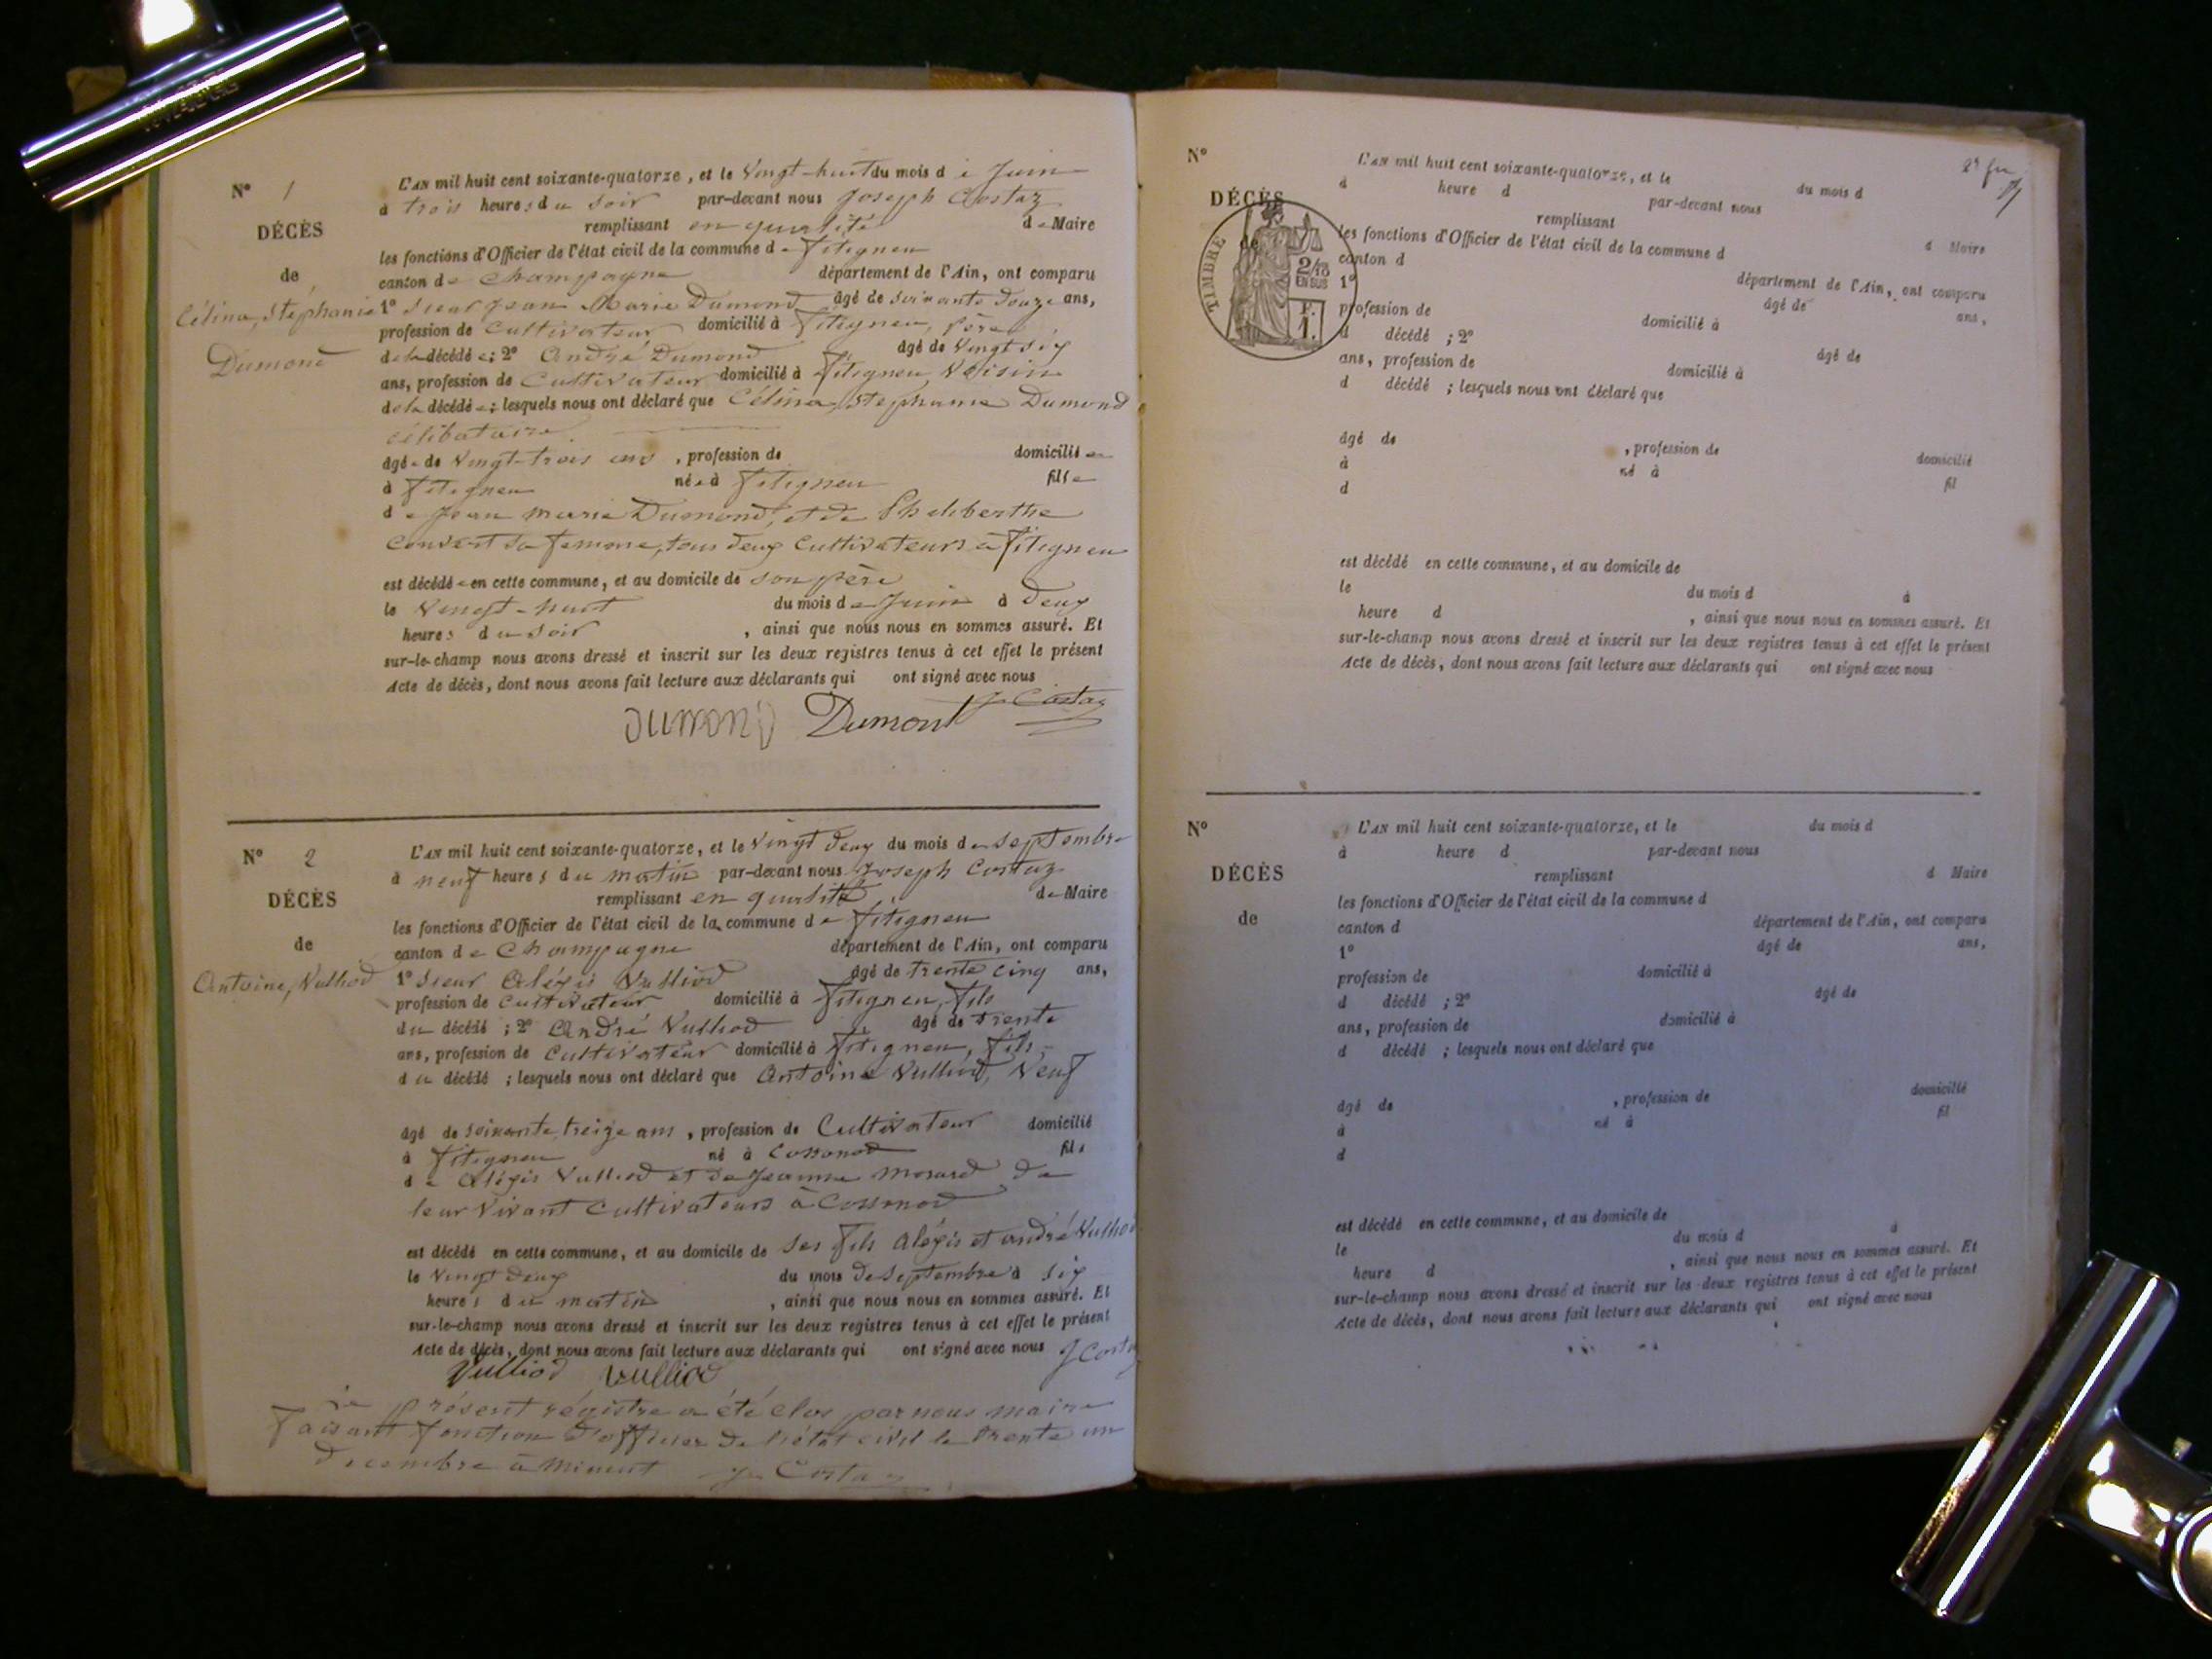 N° 1
DÉCÈS
de
Célina, Stéphanie
Dumond
L'AN mil huit cent soixante-quatorze, et le Vingt-huit du mois de Juin
à trois heures du soir par-devant nous Joseph Costaz
remplissant en qualité de Maire
les fonctions d'Officier de l'état civil de la commune de Fitigneu
canton de Champagne département de l'Ain, ont comparu
1° Sieur Jean Marie Dumond âgé de soixante douze ans,
profession de Cultivateur domicilié à Fitigneu, père
de la décédée; 2° André Dumond âgé de Vingt six
ans, profession de Cultivateur domicilié à Fitigneu Voisin
de la décédée; lesquels nous ont déclaré que Célina, Stéphanie Dumond
célibataire.
âgée de Vingt-trois ans, profession de domiciliée
à Fitigneu née à Fitigneu fille
de Jean marie Dumond, et de Philiberthe
Convert sa femme, tous deux Cultivateurs à Fitigneu
est décédée en cette commune, et au domicile de son père
le Vingt-huit du mois de Juin à Deux
heures du soir, ainsi que nous nous en sommes assuré. Et
sur-le-champ nous avons dressé et inscrit sur les deux registres tenus à cet effet le présent
Acte de décès, dont nous avons fait lecture aux déclarants qui ont signé avec nous
J. Costaz
DUMOND Dumont
N° 2
DÉCÈS
de
Antoine, Vulliod
L'AN mil huit cent soixante-quatorze, et le Vingt deux du mois de septembre
à neuf heures du matin par-devant nous Joseph Costaz
remplissant en qualité de Maire
les fonctions d'Officier de l'état civil de la commune de Fitigneu
canton de Champagne département de l'Ain, ont comparu
1° Sieur Aléxis Vulliod âgé de trente cinq ans,
profession de Cultivateur domicilié à Fitigneu, fils
du décédé; 2° André Vulliod âgé de trente
ans, profession de Cultivateur domicilié à Fitigneu, fils
du décédé; lesquels nous ont déclaré que Antoine Vulliod, Veuf
âgé de soixante treize ans, profession de Cultivateur domicilié
à Fitigneu né à Cossonod fils
de Aléxis Vulliod et de Jeanne De
leur Vivant Cultivateurs à Cossonod
est décédé en cette commune, et au domicile de ses fils Aléxis et andré Vulliod
le Vingt deux du mois de septembre à six
heures du matin, ainsi que nous nous en sommes assuré. Et
sur-le-champ nous avons dressé et inscrit sur les deux registres tenus à cet effet le présent
Acte de décès, dont nous avons fait lecture aux déclarants qui ont signé avec nous J Costaz
Vulliod Vulliod
Le présent régistre a été clos par nous maire
faisant fonction d'officier de l'état civil le trente un
décembre à minuit J. Costaz
N°
DÉCÈS
de
TIMBRE
2/10
EN SUS
F.
1.
L'AN mil huit cent soixante-quatorze, et le du mois d
à heure d par-devant nous
remplissant d Maire
les fonctions d'Officier de l'état civil de la commune d
canton d département de l'Ain, ont comparu
1° âgé de ans,
profession de domicilié à
d décédé ; 2° âgé de
ans, profession de domicilié à
d décédé ; lesquels nous ont déclaré que
âgé de , profession de domicilié
à né à fil
d
est décédé en cette commune, et au domicile de
le du mois d à
heure d , ainsi que nous nous en sommes assuré. Et
sur-le-champ nous avons dressé et inscrit sur les deux registres tenus à cet effet le présent
Acte de décès, dont nous avons fait lecture aux déclarants qui ont signé avec nous
N°
DÉCÈS
de
L'AN mil huit cent soixante-quatorze, et le du mois d
à heure d par-devant nous
remplissant d Maire
les fonctions d'Officier de l'état civil de la commune d
canton d département de l'Ain, ont comparu
1° âgé de ans,
profession de domicilié à
d décédé ; 2° âgé de
ans, profession de domicilié à
d décédé ; lesquels nous ont déclaré que
âgé de , profession de domicilié
à né à fil
d
est décédé en cette commune, et au domicile de
le du mois d à
heure d , ainsi que nous nous en sommes assuré. Et
sur-le-champ nous avons dressé et inscrit sur les deux registres tenus à cet effet le présent
Acte de décès, dont nous avons fait lecture aux déclarants qui ont signé avec nous